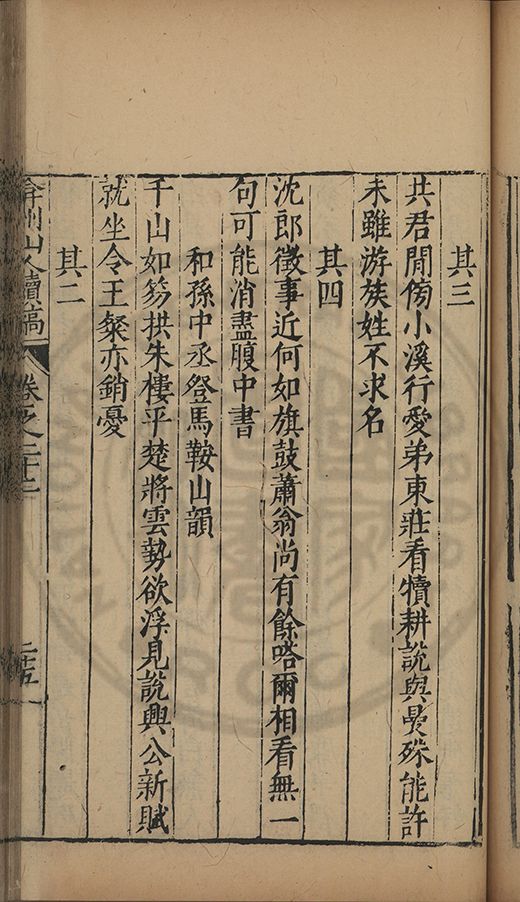 其三
共君閒傍小溪行愛弟東莊看犢耕說與曼殊能許
未雖游族姓不求名
其四
沈郎徵事近何如旗鼓蕭翁尚有餘嗒爾相看無一
句可能消盡腹中書
和孫中丞登馬鞍山韻
千山如笏拱朱樓平楚將雲勢欲浮見說興公新賦
就坐令王粲亦銷憂
其二
弇州山人續稿
卷之二十二
二十五